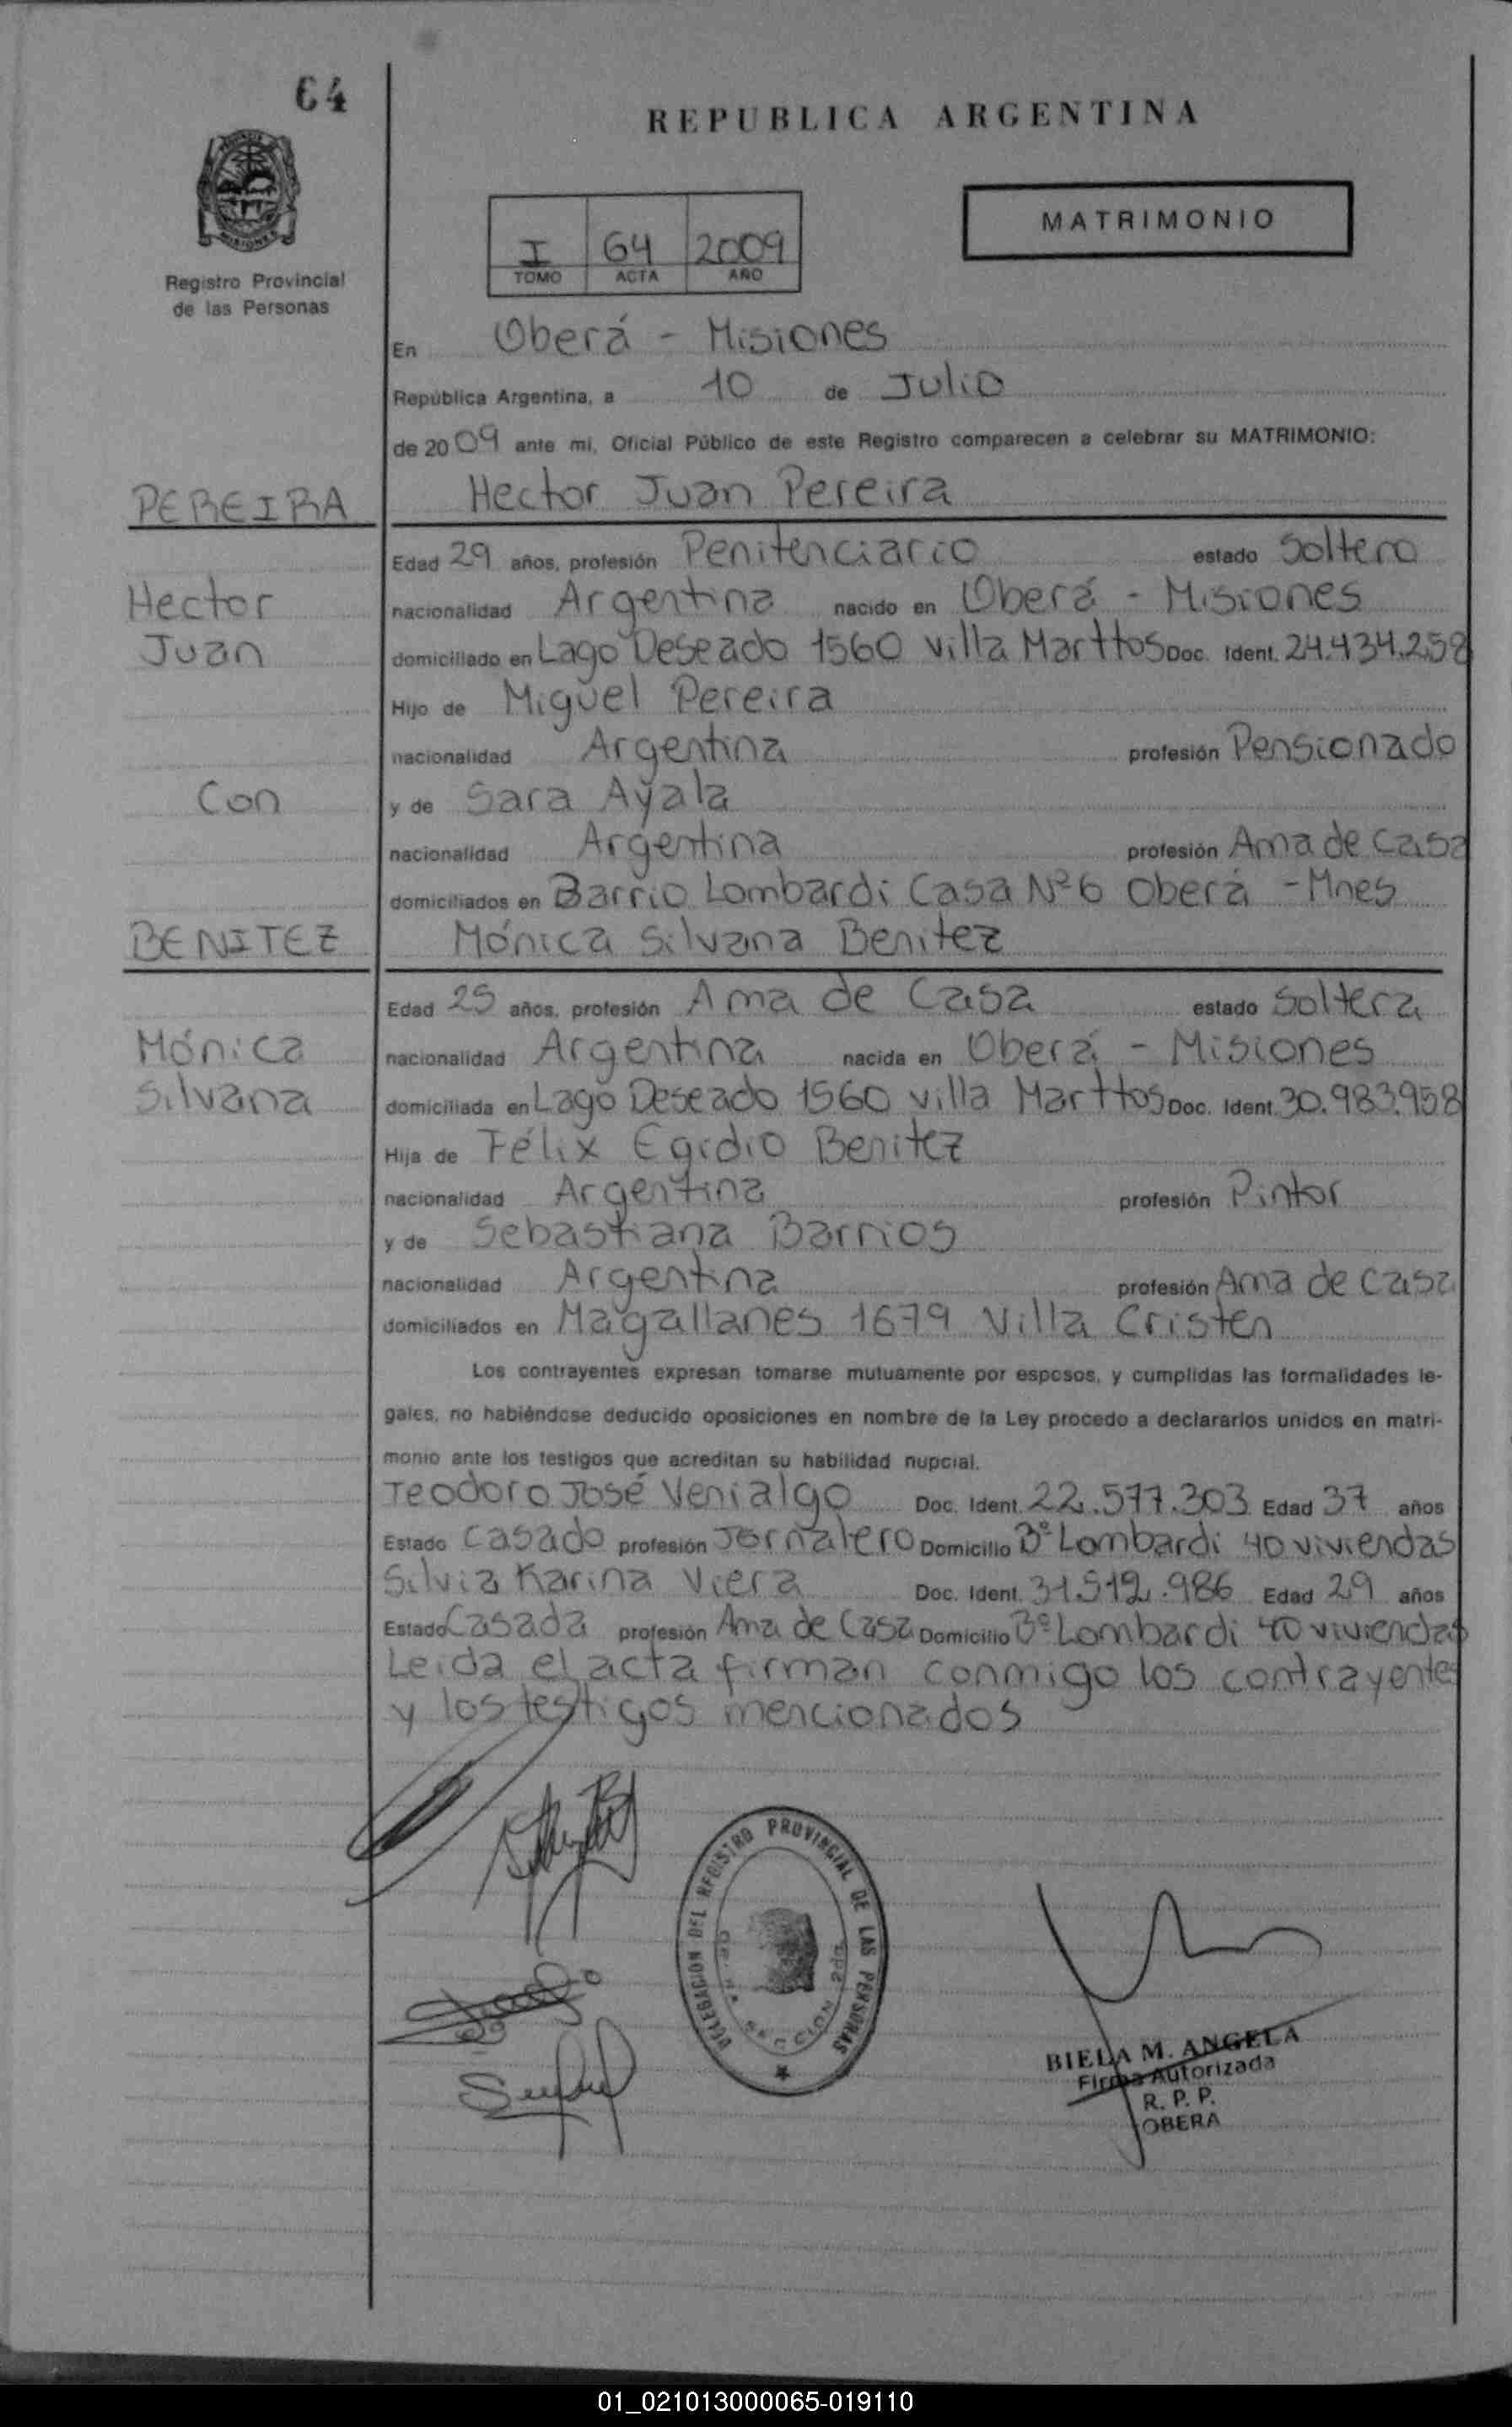 64
REPUBLICA ARGENTINA
MATRIMONIO
I 64 2009
TOMO ACTA AÑO
MISIONES
Registro Provincial
de las Personas
En Oberá - Misiones
República Argentina, a 10 de Julio
de 2009 ante mi, Oficial Público de este Registro comparecen a celebrar su MATRIMONIO:
PEREIRA Hector Juan Pereira
Edad 29 años, profesión Penitenciario estado Soltero
Hector nacionalidad Argentina nacido en Oberá - Misiones
Juan domiciliado en Lago Deseado 1560 Villa Marttos Doc. Ident. 24.434.258
Hijo de Miguel Pereira
nacionalidad Argentina profesión Pensionado
Con y de Sara Ayala
nacionalidad Argentina profesión Ama de Casa
domiciliados en Barrio Lombardi Casa Nº 6 Oberá - Mnes
BENITEZ Mónica Silvana Benitez
Edad 25 años, profesión Ama de Casa estado Soltera
Mónica nacionalidad Argentina nacida en Oberá - Misiones
Silvana domiciliada en Lago Deseado 1560 Villa Marttos Doc. Ident. 30.983.958
Hija de Félix Egidio Benitez
nacionalidad Argentina profesión Pintor
y de Sebastiana Barrios
nacionalidad Argentina profesión Ama de Casa
domiciliados en Magallanes 1679 Villa Cristen
Los contrayentes expresan tomarse mutuamente por esposos, y cumplidas las formalidades le-
gales, no habiéndose deducido oposiciones en nombre de la Ley procedo a declararlos unidos en matri-
monio ante los testigos que acreditan su habilidad nupcial.
Teodoro José Venialgo Doc. Ident. 22.577.303 Edad 37 años
Estado Casado profesión Jornalero Domicilio Bº Lombardi 40 viviendas
Silvia Karina Viera Doc. Ident. 31.512.986 Edad 29 años
Estado Casada profesión Ama de Casa Domicilio Bº Lombardi 40 viviendas
Leida el acta firman conmigo los contrayentes
y los testigos mencionados
DELEGACION DEL REGISTRO PROVINCIAL DE LAS PERSONAS
BIELA M. ANGELA
Firma Autorizada
R. P. P.
OBERA
01_021013000065-019110